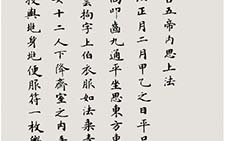 五帝内思上法
正月二月甲乙之日平旦
叩齒九通平坐思東方東
雲拘字上伯衣服如法乘青
女十二人下降齋室之内
授與兆身兆便服符一枚